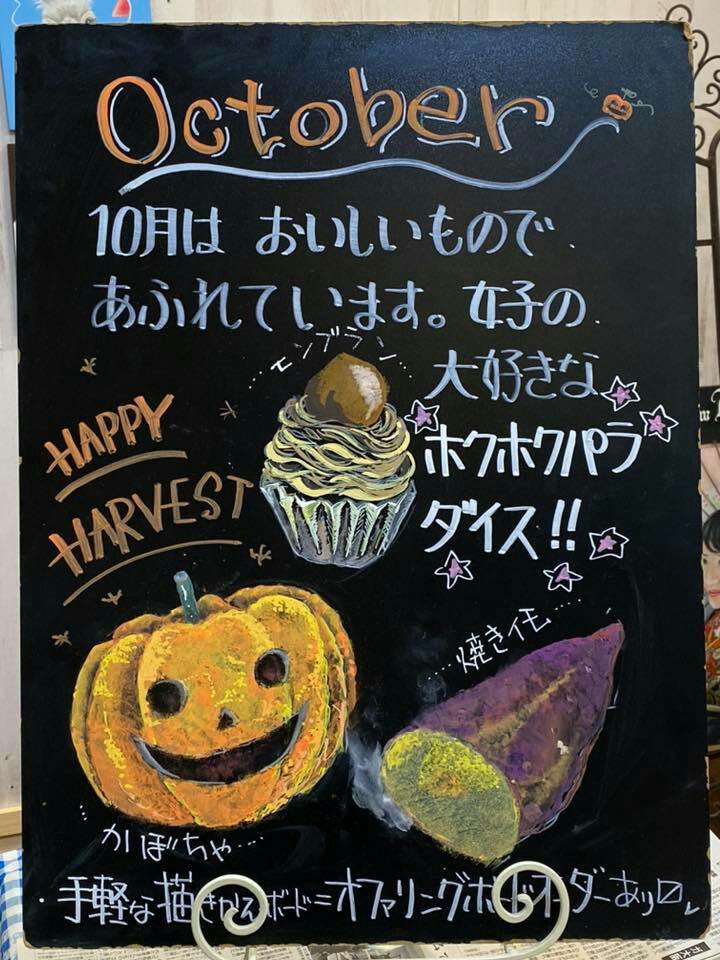 October
10月は おいしいもので
あふれています。女子の
モンブラン
大好きな
ホクホクパラ
ダイス!!
HAPPY
HARVEST
焼きイモ
かぼちゃ
手軽な描きかえボード=オファリングボードオーダーあり〼